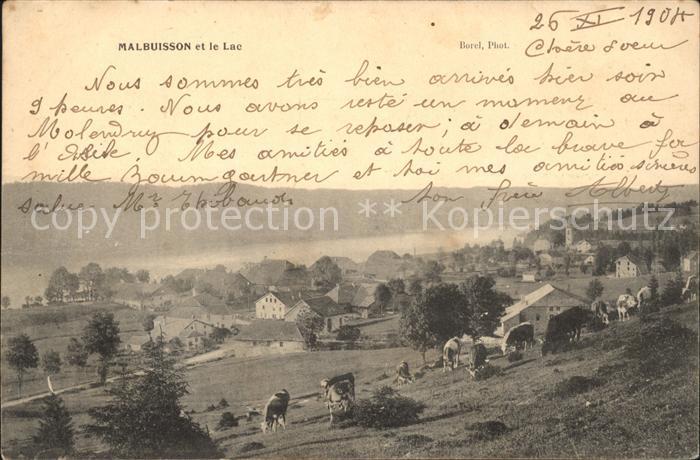 25 XI 1904
MALBUISSON et le Lac
Borel, Phot.
Chère Sœur
Nous sommes très bien arrivés hier soir
9 heures. Nous avons resté un moment au
pour se reposer; à demain à
l' Mes amitiés à toute la brave fa
mille Baumgartner et toi mes amitiés sincères
salue Mr Thibauds ton frère Albert
copy protection ** Kopierschutz **